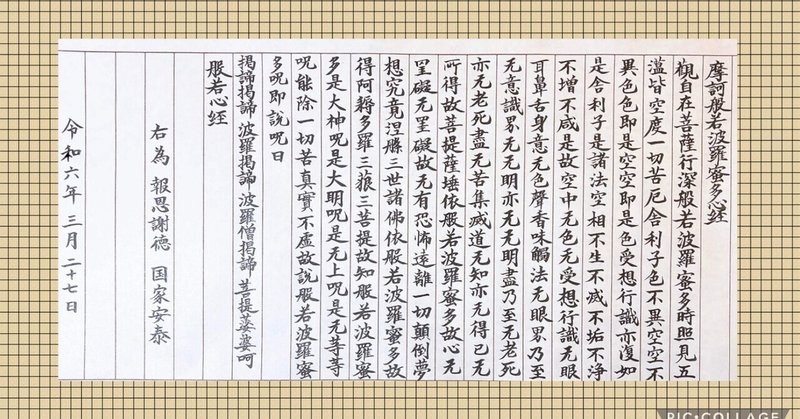 摩訶般若波羅蜜多心経
觀自在菩薩行深般若波羅蜜多時照見五
薀皆空度一切苦厄舎利子色不異空空不
異色色即是空空即是色受想行識亦復如
是舎利子是諸法空相不生不滅不垢不浄
不増不減是故空中无色无受想行識无眼
耳鼻舌身意无色聲香味觸法无眼界乃至
无意識界无无明亦无无明盡乃至无老死
亦无老死盡无苦集滅道无知亦无得已无
所得故菩提薩埵依般若波羅蜜多故心无
罣礙无罣礙故无有恐怖遠離一切顛倒夢
想究竟涅槃三世諸佛依般若波羅蜜多故
得阿耨多羅三藐三菩提故知般若波羅蜜
多是大神呪是大明呪是无上呪是无等等
呪能除一切苦真實不虚故説般若波羅蜜
多呪即説呪曰
揭諦揭諦 波羅揭諦 波羅僧揭諦 菩提婆婆呵
般若心経
右為 報恩謝徳 国家安泰
令和六年 三月 二十七日
PIC•COLLAGE